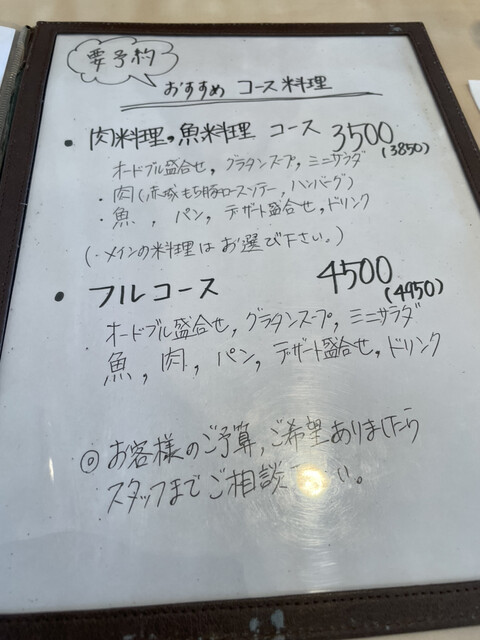 要予約
おすすめ コース料理
• 肉料理, 魚料理 コース 3500
(3850)
オードブル盛合せ, グラタンスープ, ミニサラダ
・肉(赤城もち豚ロースソテー, ハンバーグ)
・魚 , パン, デザート盛合せ, ドリンク
(・メインの料理は お選び下さい。)
• フルコース 4500
(4950)
オードブル盛合せ, グラタンスープ, ミニサラダ
魚, 肉, パン, デザート盛合せ, ドリンク
◎お客様のご予算, ご希望ありましたら
スタッフまでご相談 い。